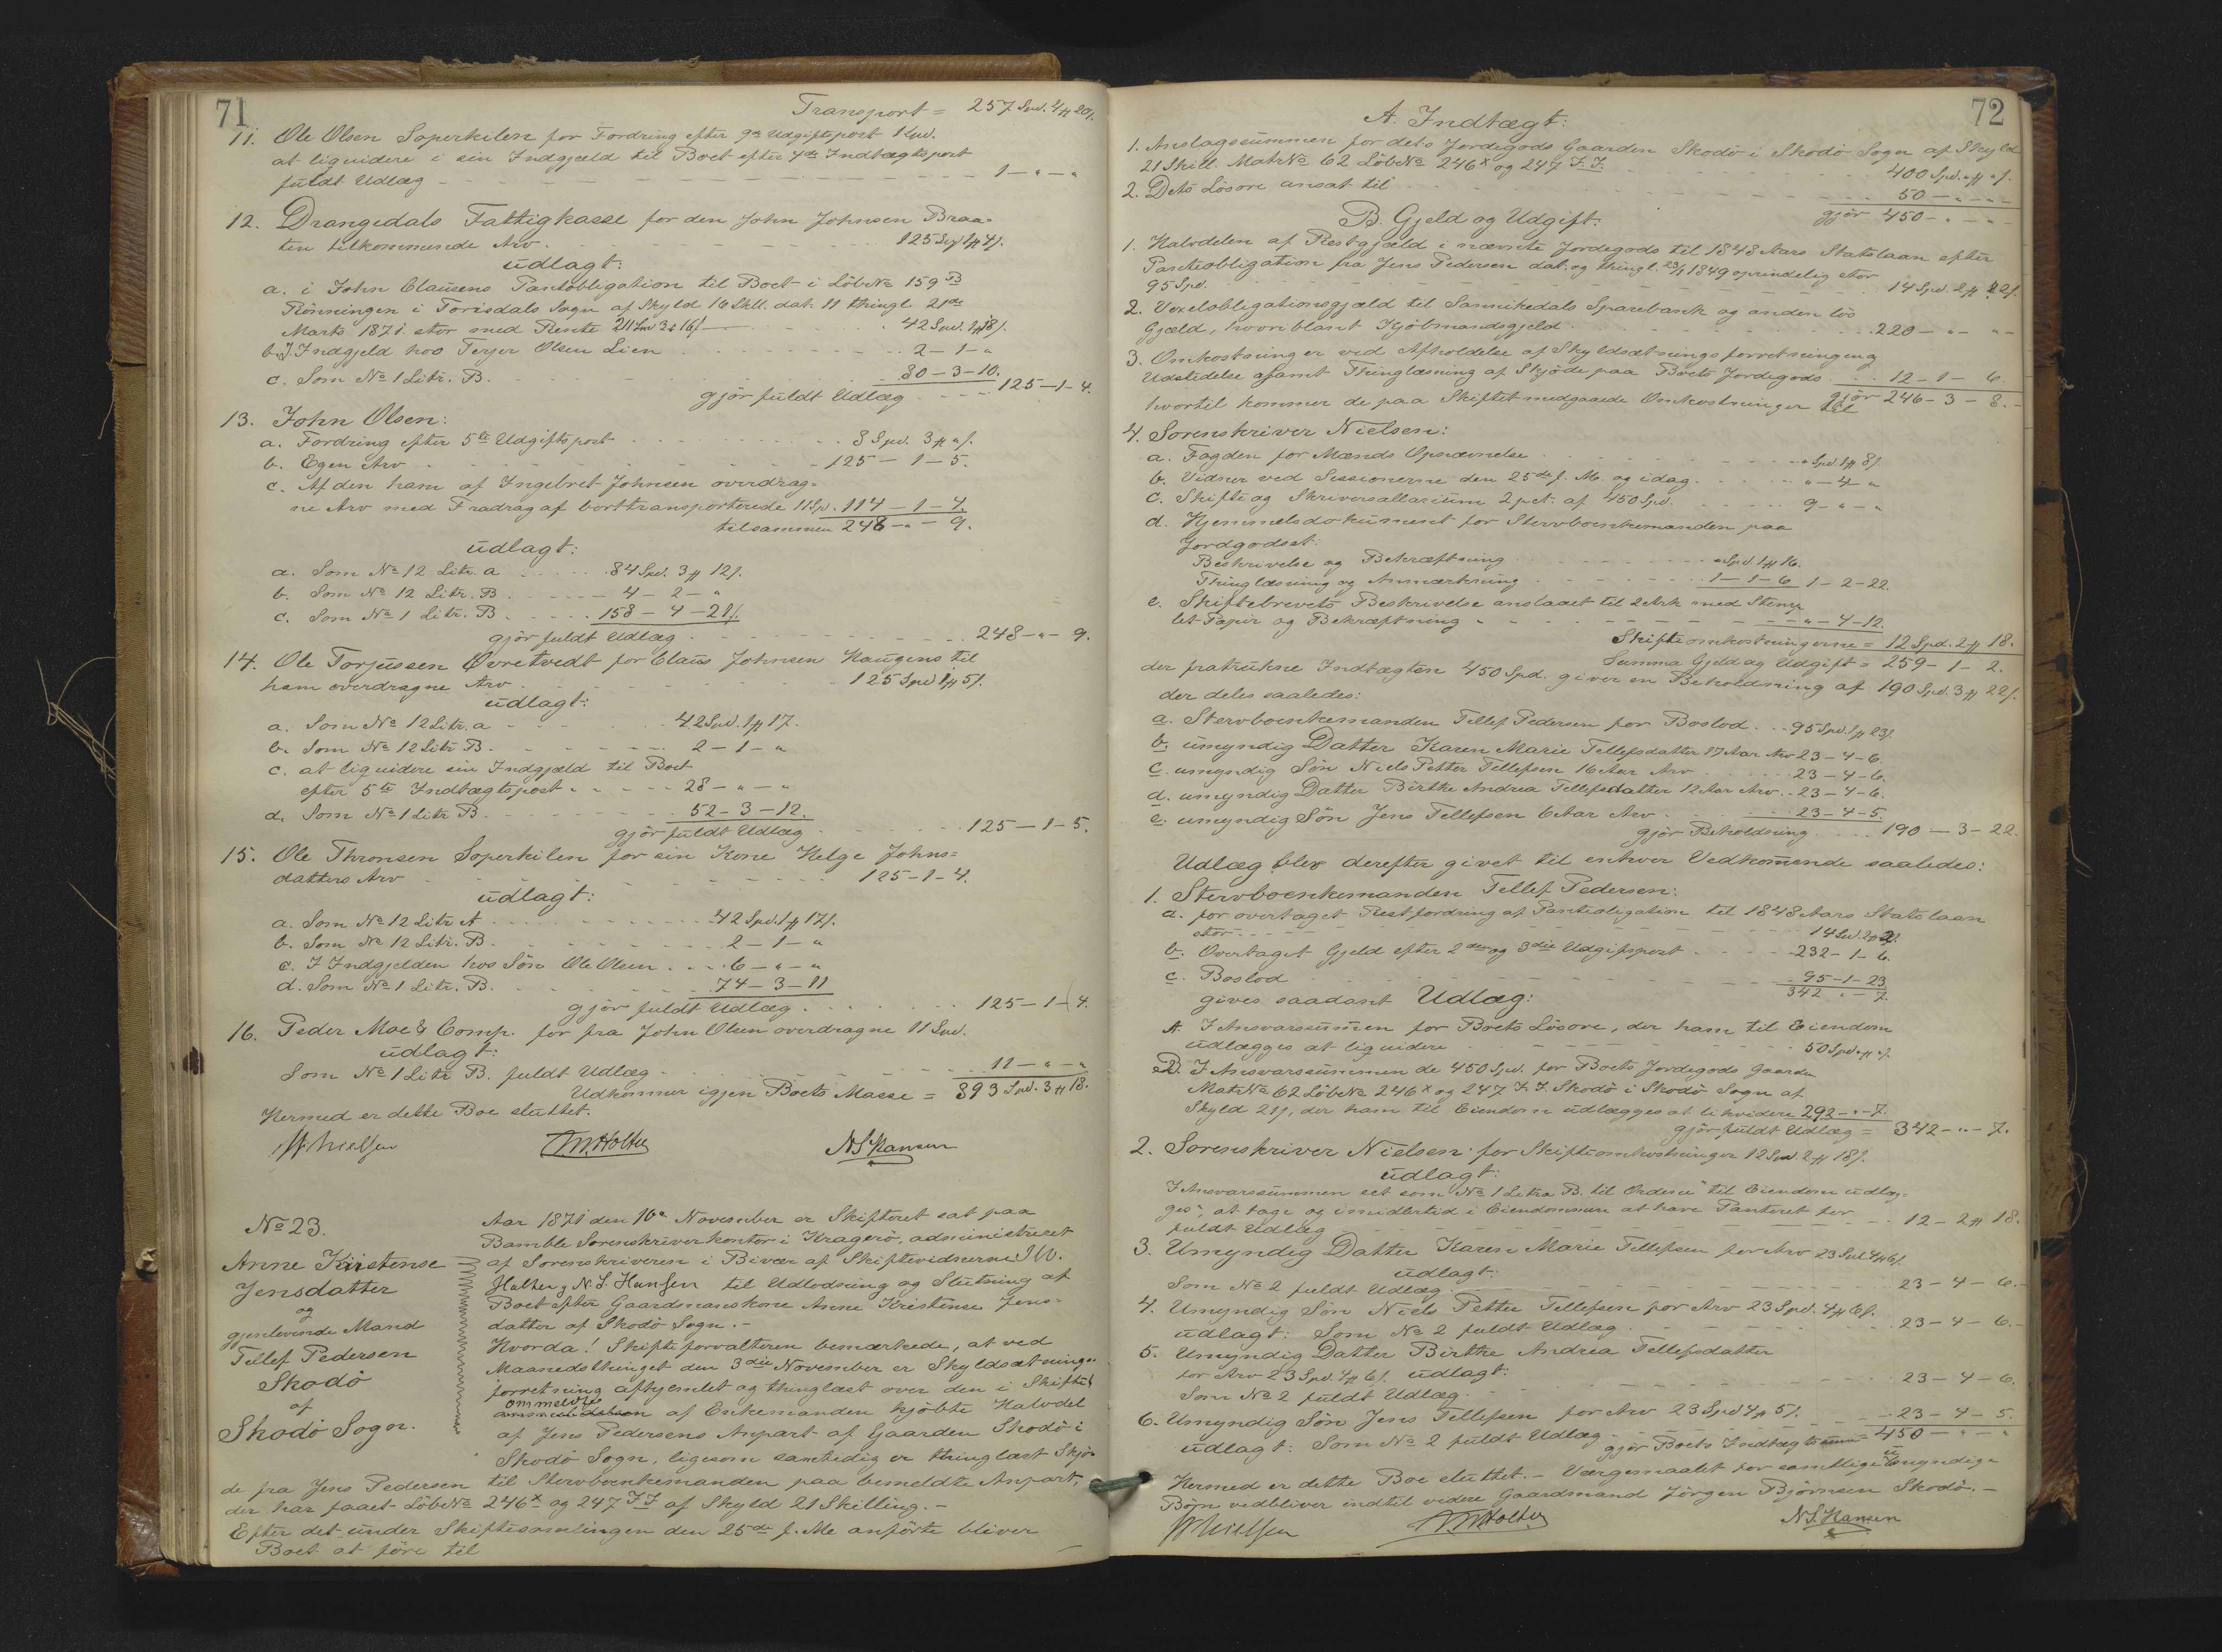 71
Transport = 257 Spd. 4 ℔ 20 s.
11. Ole Olsen Soperkilen for Fordring efter 9de Udgiftspost 1 Spd.
at liquidere i sin Indgjæld til Boet efter 4de Indtægtspost
fuldt Udlæg - - - 1 - " - "
12. Drangedals Fattigkasse for den John Johnsen Braa=
ten tilkommende Arv. - - - 125 Spd 1 ℔ 4 s.
udlagt:
a. i John Clausens Pantobligation til Boet i LöbNo 159 B
Rönningen i Torisdals Sogn af Skyld 16 Skll. dat. 11 thingl. 21de
Marts 1871 stor med Rente 211 Spd 3 ℔ 16 s - - - 42 Spd. 1 ℔ 18 s.
b. I Indgjeld hos Terjer Olsen Lien - - - 2 - 1 - "
c. Som No 1 Litr. B. - - - 80 - 3 - 10.
gjör fuldt Udlæg - - - 125 - 1 - 4.
13. John Olsen:
a. Fordring efter 5te Udgiftspost - - - 8 Spd. 3 ℔ " s.
b. Egen Arv - - - 125 - 1 - 5.
c. Af den ham af Ingebret Johnsen overdrag=
ne Arv med Fradrag af borttransporterede 11 Sp. 114 - 1 - 4.
tilsammen 248 - " - 9.
udlagt:
a. Som No 12 Litr. a - - - 84 Spd. 3 ℔ 12 s.
b. Som No 12 Litr. B. - - - 4 - 2 - "
c. Som No 1 Litr. B - - - 158 - 4 - 21 s.
gjör fuldt Udlæg - - - 248 - " - 9.
14. Ole Torjussen Övretvedt for Claus Johnsen Haugens til
ham overdragne Arv - - - 125 Spd 1 ℔ 5 s.
udlagt:
a. Som No 12 Litr. a - - - 42 Spd. 1 ℔ 17.
b. Som No 12 Litr B. - - - 2 - 1 - "
c. at liquidere sin Indgjæld til Boet
efter 5te Indtægtspost - - - 28 - " - "
d. Som No 1 Litr B. - - - 52 - 3 - 12.
gjör fuldt Udlæg - - - 125 - 1 - 5.
15. Ole Thronsen Soperkilen for sin Kone Helge Johns=
datters Arv - - - 125 - 1 - 4.
udlagt:
a. Som No 12 Litr A - - - 42 Spd. 1 ℔ 17 s.
b. Som No 12 Litr. B. - - - 2 - 1 - "
c. I Indgjelden hos Sön Ole Olsen - - - 6 - " - "
d. Som No 1 Litr. B. - - - 74 - 3 - 11
gjör fuldt Udlæg - - - 125 - 1 - 4.
16. Peder Moe & Comp. for fra John Olsen overdragne 11 Spd.
udlagt:
Som No 1 Litr B. fuldt Udlæg - - - 11 - " - "
Udkommer igjen Boets Masse = 893 Spd. 3 ℔ 18.
Hermed er dette Boe sluttet.
Nielsen J.W. Holter N.S. Hansen
No 23.
Anne Kirstense
Jensdatter
og
gjenlevende Mand
Tellef Pedersen
Skodö
af
Skodö Sogn.
Aar 1871 den 10de November er Skifteret sat paa
Bamble Sorenskriverkontor i Kragerö, administreret
af Sorenskriveren i Bivær af Skiftevidnerne J.W.
Holter, N. S. Hansen til Udlodning og Slutning af
Boet efter Gaardmandskone Anne Kristense Jens=
datter af Skodö Sogn. -
Hvorda! Skifteforvalteren bemærkede, at ved
Maanedsthinget den 3die November er Skyldsætnings=
forretning afhjemlet og thinglæst over den i Skiftet
ommeldte
af Enkemanden kjöbte Halvdel
af Jens Pedersens Anpart af Gaarden Skodö i
Skodö Sogn, ligesom samtidig er thinglæst Skjö=
de fra Jens Pedersen til Stervboenkemanden paa bemeldte Anpart,
der har faaet LöbeNo 246x og 247 FF af Skyld 21 Skilling. -
Efter det under Skiftesamlingen den 25de f. Me anförte bliver
Boet at före til
72
A. Indtægt:
1. Anslagssummen for dets Jordegods Gaarden Skodö i Skodö Sogn af Skyld
21 Skill. MatrNo 62 LöbNo 246x og 247 F.F. - - - 400 Spd. " ℔ " s.
2. Dets Lösöre ansat til - - - 50 - " - "
gjör 450 - " - "
B. Gjeld og Udgift:
1. Halvdelen af Restgjæld i nævnte Jordegods til 1848 Aars Statslaan efter
Panteobligation fra Jens Pedersen dat. og thingl. 23/1 1849 oprindelig stor
95 Spd. - - - 14 Spd. 2 ℔ 2 s.
2. Vexelobligationsgjæld til Sannikedals Sparebank og anden lös
Gjæld, hvoriblant Kjöbmandsgjeld - - - 220 - " - "
3. Omkostninger ved Afholdelse af Skyldsætningsforretningen og
Udstedelse afsamt Thinglæsning af Skjöde paa Boets Jordegods - - 12 - 1 - 6.
gjör 246 - 3 - 8. -
hvortil kommer de paa Skiftet medgaaede Omkostninger til
4. Sorenskriver Nielsen:
a. Fogden for Mænds Opnævnelse - - - " Spd. 1 ℔ 8 s.
b. Vidner ved Sessionerne den 25de f. M. og idag - - - " - 4 - "
c. Skifte og Skriversallarium 2 pct. af 450 Spd. - - - 9 - " - "
d. Hjemmelsdokument for Stervboenkemanden paa
Jordgodset:
Beskrivelse og Bekræftning - - - " Spd. 1 ℔ 16.
Thinglæsning og Anmærkning - - - 1 - 1 - 6 1 - 2 - 22.
e. Skiftebrevets Beskrivelse anslaaet til 2 Ark med Stemp
let Papir og Bekræftning - - - " - 4 - 12.
Skifteomkostningerne = 12 Spd. 2 ℔ 18.
Summa Gjeld og Udgift = 259 - 1 - 2.
der fratrukne Indtægten 450 Spd. giver en Beholdning af 190 Spd. 3 ℔ 22 s.
der deles saaledes:
a. Stervboenkemanden Tellef Pedersen for Boslod - - 95 Spd. 1 ℔ 23 s.
b. umyndig Datter Karen Marie Tellefsdatter 17 Aar Arv 23 - 4 - 6.
c. umyndig Sön Niels Petter Tellefsen 16 Aar Arv - - 23 - 4 - 6.
d. umyndig Datter Birthe Andrea Tellefsdatter 12 Aar Arv - 23 - 4 - 6.
e. umyndig Sön Jens Tellefsen 6 Aar Arv - - - 23 - 4 - 5.
gjör Beholdning - - - 190 - 3 - 22.
Udlæg blev derefter givet til enhver Vedkommende saaledes:
1. Stervboenkemanden Tellef Pedersen:
a. for overtaget Restfordring af Panteoligation til 1848 Aars Statslaan
stor - - - 14 Spd. 2 ℔ 2 s.
b. Overtaget Gjeld efter 2den og 3die Udgiftspost - - - 232 - 1 - 6.
c. Boslod - - - 95 - 1 - 23
342 " - 7.
gives saadant Udlæg:
A. I Ansvarssummen for Boets Lösöre, der ham til Eiendom
udlægges at liquidere - - - 50 Spd. " ℔ " s.
B. I Ansvarssummen de 450 Spd. for Boets Jordegods Gaarden
MatrNo 62 LöbeNo 246x og 247 F.F. Skodö i Skodö Sogn af
Skyld 21 s, der ham til Eiendom udlægges at likvidere 292 - " - 7.
gjör fuldt Udlæg = 342 - " - 7.
2. Sorenskriver Nielsen for Skifteomkostninger 12 Spd. 2 ℔ 18 s.
udlagt:
I Ansvarssummen set som No 1 Litra B. til Ordene "til Eiendom udlæg=
ges", at tage og imidlertid i Eiendommen at have Panteret for
fuldt Udlæg - - - 12 - 2 ℔ 18.
3. Umyndig Datter Karen Marie Tellefsen for Arv 23 Spd 4 ℔ 6 s.
udlagt:
Som No 2 fuldt Udlæg - - - 23 - 4 - 6. -
4. Umyndig Sön Niels Petter Tellefsen for Arv 23 Spd. 4 ℔ 6 s.
udlagt: Som No 2 fuldt Udlæg - - - 23 - 4 - 6. -
5. Umyndig Datter Birthe Andrea Tellefsdatter
for Arv 23 Spd. 4 ℔ 6 s. udlagt:
Som No 2 fuldt Udlæg - - - 23 - 4 - 6.
6. Umyndig Sön Jens Tellefsen for Arv 23 Spd 4 ℔ 5 s.
udlagt: Som No 2 fuldt Udlæg - - - 23 - 4 - 5.
gjör Boets Indtægtssum = 450 - " - "
Hermed er dette Boe sluttet. - Værgemaalet for samtlige umyndige
Börn vedbliver indtil videre Gaardmand Jörgen Björnsen Skodö. -
Nielsen J.W. Holter N.S. Hansen